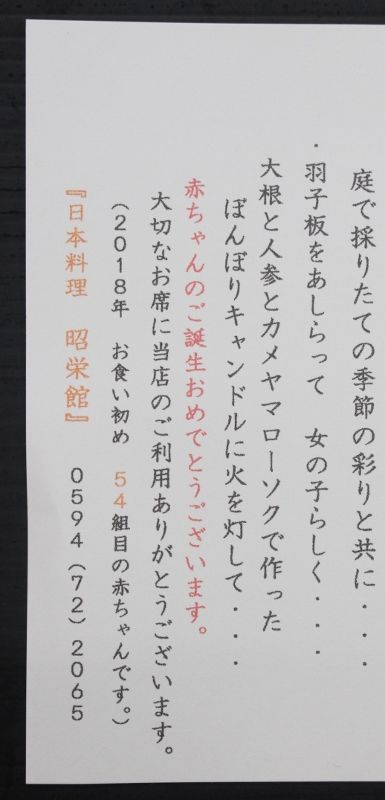 庭で採りたての季節の彩りと共に・・・
・羽子板をあしらって　女の子らしく・・・
大根と人参とカメヤマローソクで作った
ぼんぼりキャンドルに火を灯して・・・
赤ちゃんのご誕生おめでとうございます。
大切なお席に当店のご利用ありがとうございます。
(2018年　お食い初め　54組目の赤ちゃんです。)
『日本料理　昭栄館』　0594(72)2065